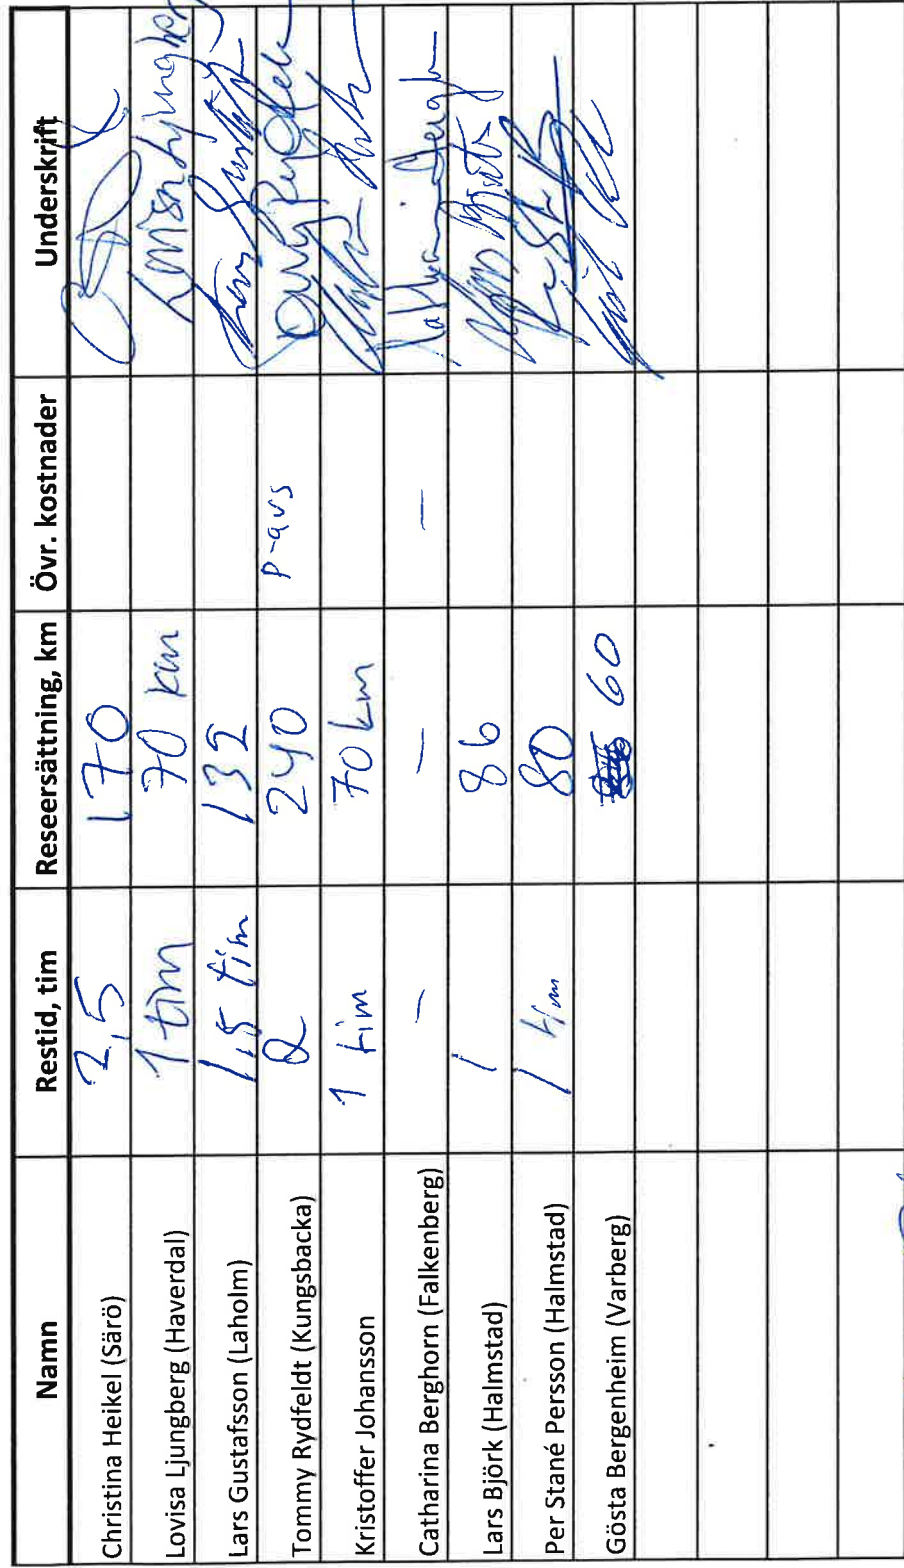 Namn Restid, tim Reseersättning, km Övr. kostnader Underskrift
Christina Heikel (Särö) 2,5 170
Lovisa Ljungberg (Haverdal) 1 tim 70 km Lovisa Ljungberg
Lars Gustafsson (Laholm) 1,5 tim 132
Tommy Rydfeldt (Kungsbacka) 2 240 p-avs
Kristoffer Johansson 1 tim 70 km
Catharina Berghorn (Falkenberg) – – –
Lars Björk (Halmstad) 1 86
Per Stané Persson (Halmstad) 1 tim 80
Gösta Bergenheim (Varberg) 60